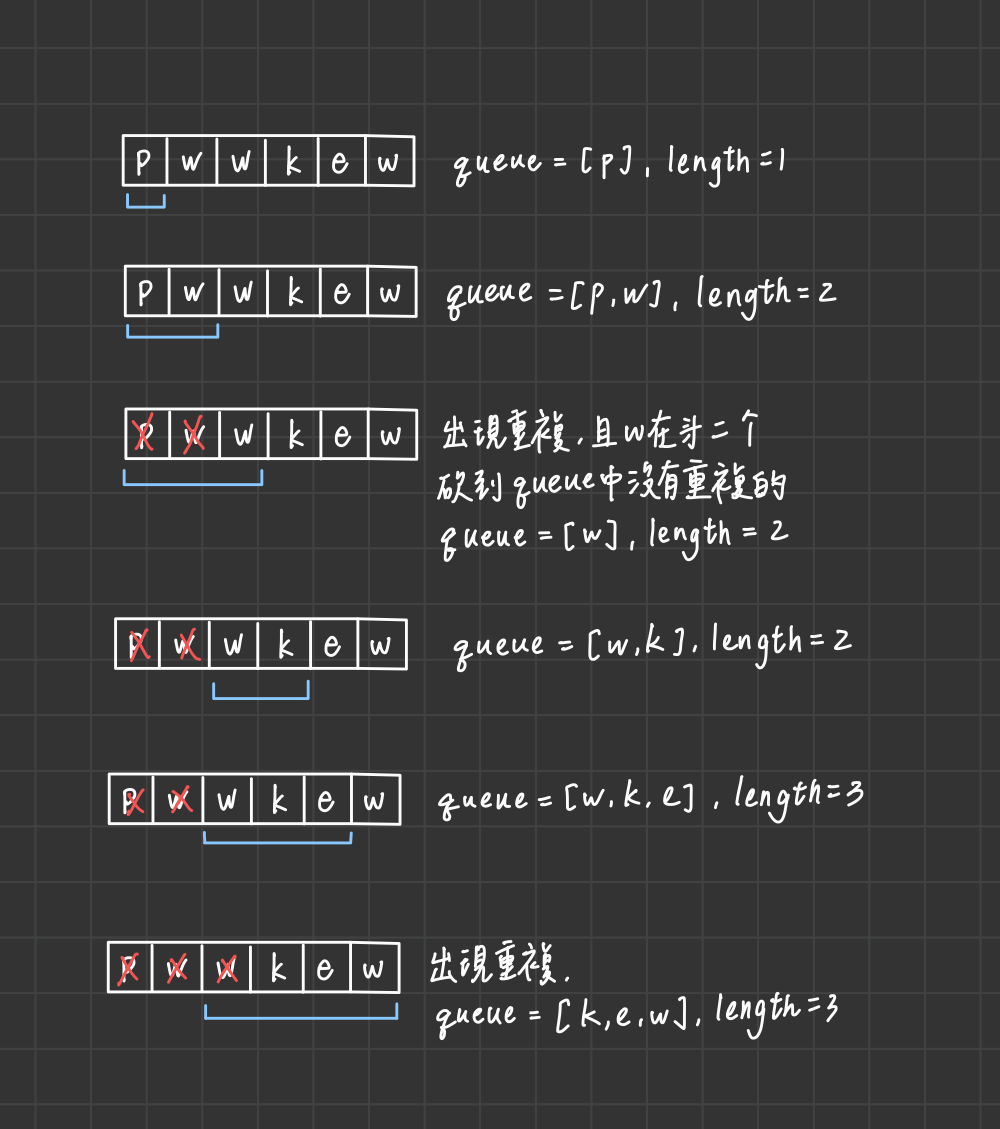 p w w k e w
queue = [p], length = 1
p w w k e w
queue = [p, w], length = 2
p w w k e w
出現重複, 且w在第二个
砍到queue中沒有重複的
queue = [w], length = 2
p w w k e w
queue = [w, k], length = 2
p w w k e w
queue = [w, k, e], length = 3
p w w k e w
出現重複,
queue = [k, e, w], length = 3